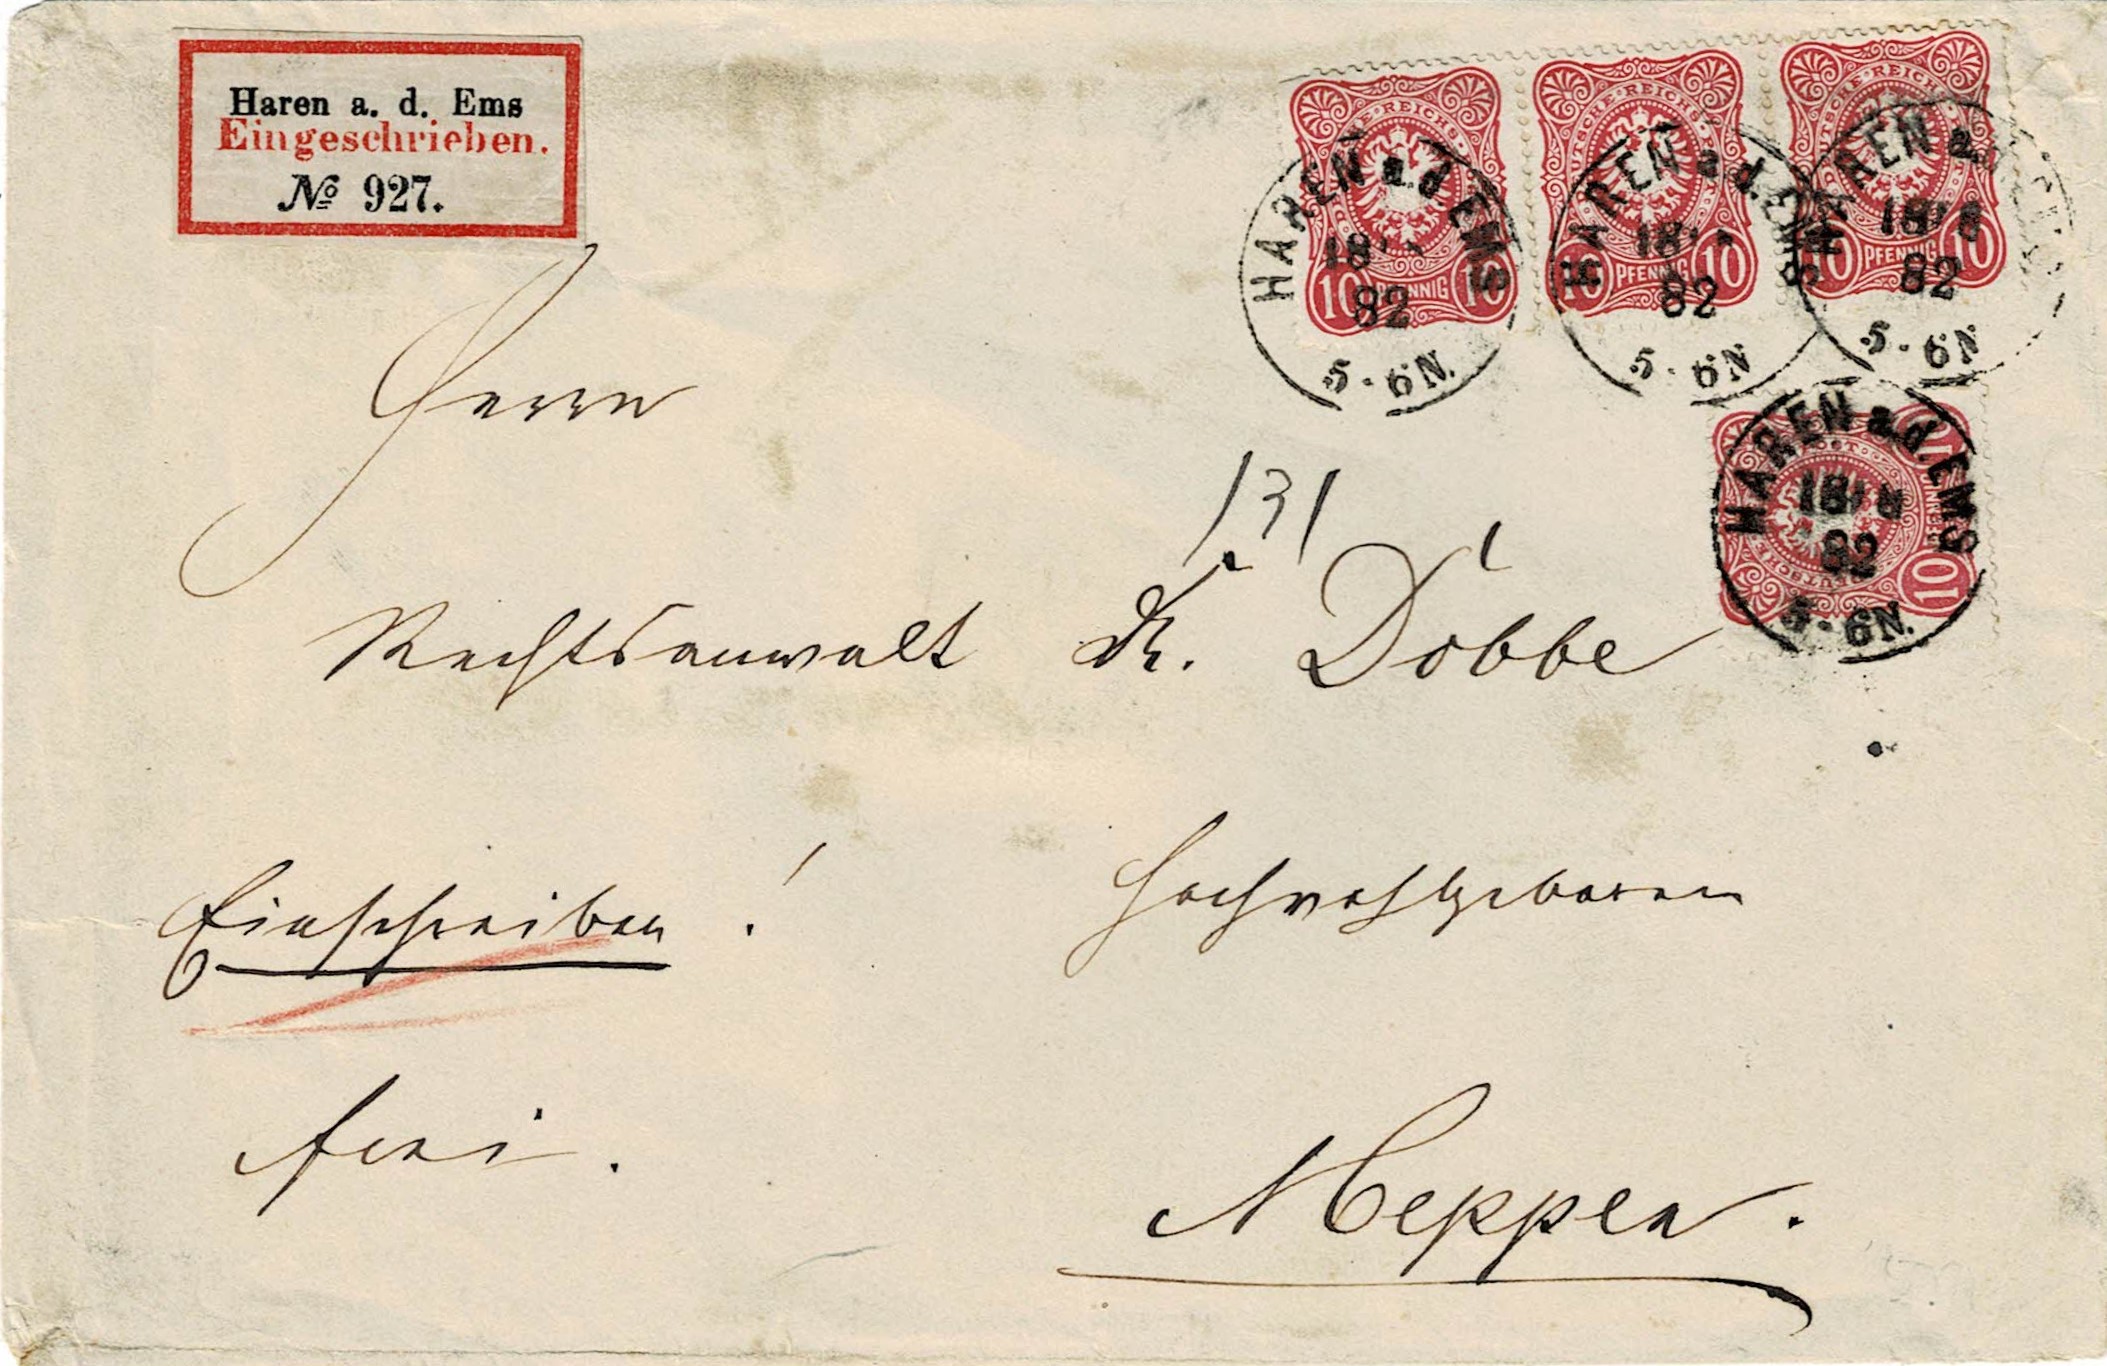 Haren a. d. Ems
Eingeschrieben.
№ 927.
DEUTSCHE REICHS-POST
10 PFENNIG 10
10 PFENNIG 10
10 PFENNIG 10
10
HAREN a.d. EMS
18
82
5-6N.
HAREN a.d. EMS
18
82
5-6N
HAREN a.d.
18
82
5-6N
HAREN a.d. EMS
18
82
5-6N.
Herrn
131
Rechtsanwalt Dr. Döbbe
Einschreiben!
Hochwohlgeboren
frei.
Meppen.